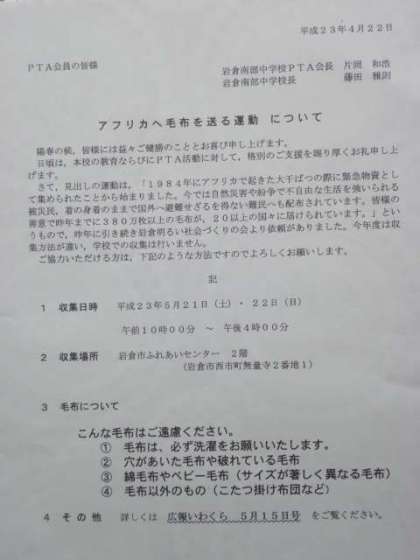 平成23年4月22日
PTA会員の皆様
岩倉南部中学校PTA会長 片岡 和浩
岩倉南部中学校長 藤田 雅則
アフリカへ毛布を送る運動 について
陽春の候、皆様には益々ご健勝のこととお喜び申し上げます。
日頃は、本校の教育ならびにPTA活動に対して、格別のご支援を賜り厚くお礼申し上
げます。
さて、見出しの運動は、「1984年にアフリカで起きた大干ばつの際に緊急物資とし
て集められたことから始まりました。今では自然災害や紛争で不自由な生活を強いられる
被災民、着の身着のままで国外へ避難せざるを得ない難民へも配布されています。皆様の
善意で昨年までに380万枚以上の毛布が、20以上の国々に届けられています。」とい
うもので、昨年に引き続き岩倉明るい社会づくりの会より依頼がありました。今年度は収
集方法が違い、学校での収集は行いません。
ご協力いただける方は、下記のような方法ですのでよろしくお願いします。
記
1 収集日時 平成23年5月21日(土)・22日(日)
午前10時00分 ~ 午後4時00分
2 収集場所 岩倉市ふれあいセンター 2階
(岩倉市西市町無量寺2番地1)
3 毛布について
こんな毛布はご遠慮ください。
① 毛布は、必ず洗濯をお願いいたします。
② 穴があいた毛布や破れている毛布
③ 綿毛布やベビー毛布(サイズが著しく異なる毛布)
④ 毛布以外のもの(こたつ掛け布団など)
4 その他 詳しくは 広報いわくら 5月15日号 をご覧ください。